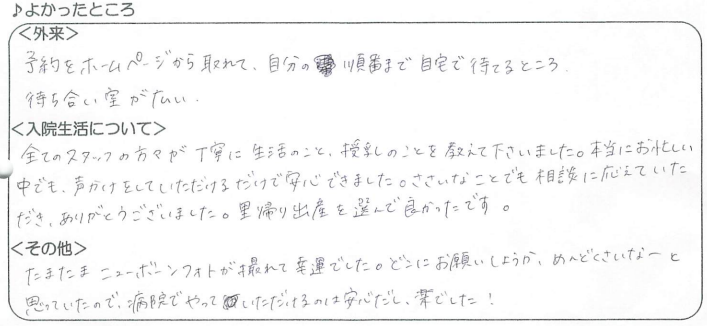 ♪よかったところ
<外来>
予約をホームページから取れて、自分の順番まで自宅で待てるところ.
待ち合い室が広い.
<入院生活について>
全てのスタッフの方々が丁寧に生活のこと、授乳のことを教えて下さいました。本当にお忙しい
中でも、声かけをしていただけるだけで安心できました。ささいなことでも相談に応えていた
だき、ありがとうございました。里帰り出産を選んで良かったです。
<その他>
たまたまニューボーンフォトが撮れて幸運でした。どこにお願いしようか、めんどくさいなーと
思っていたので、病院でやっていただけるのは安心だし、楽でした!